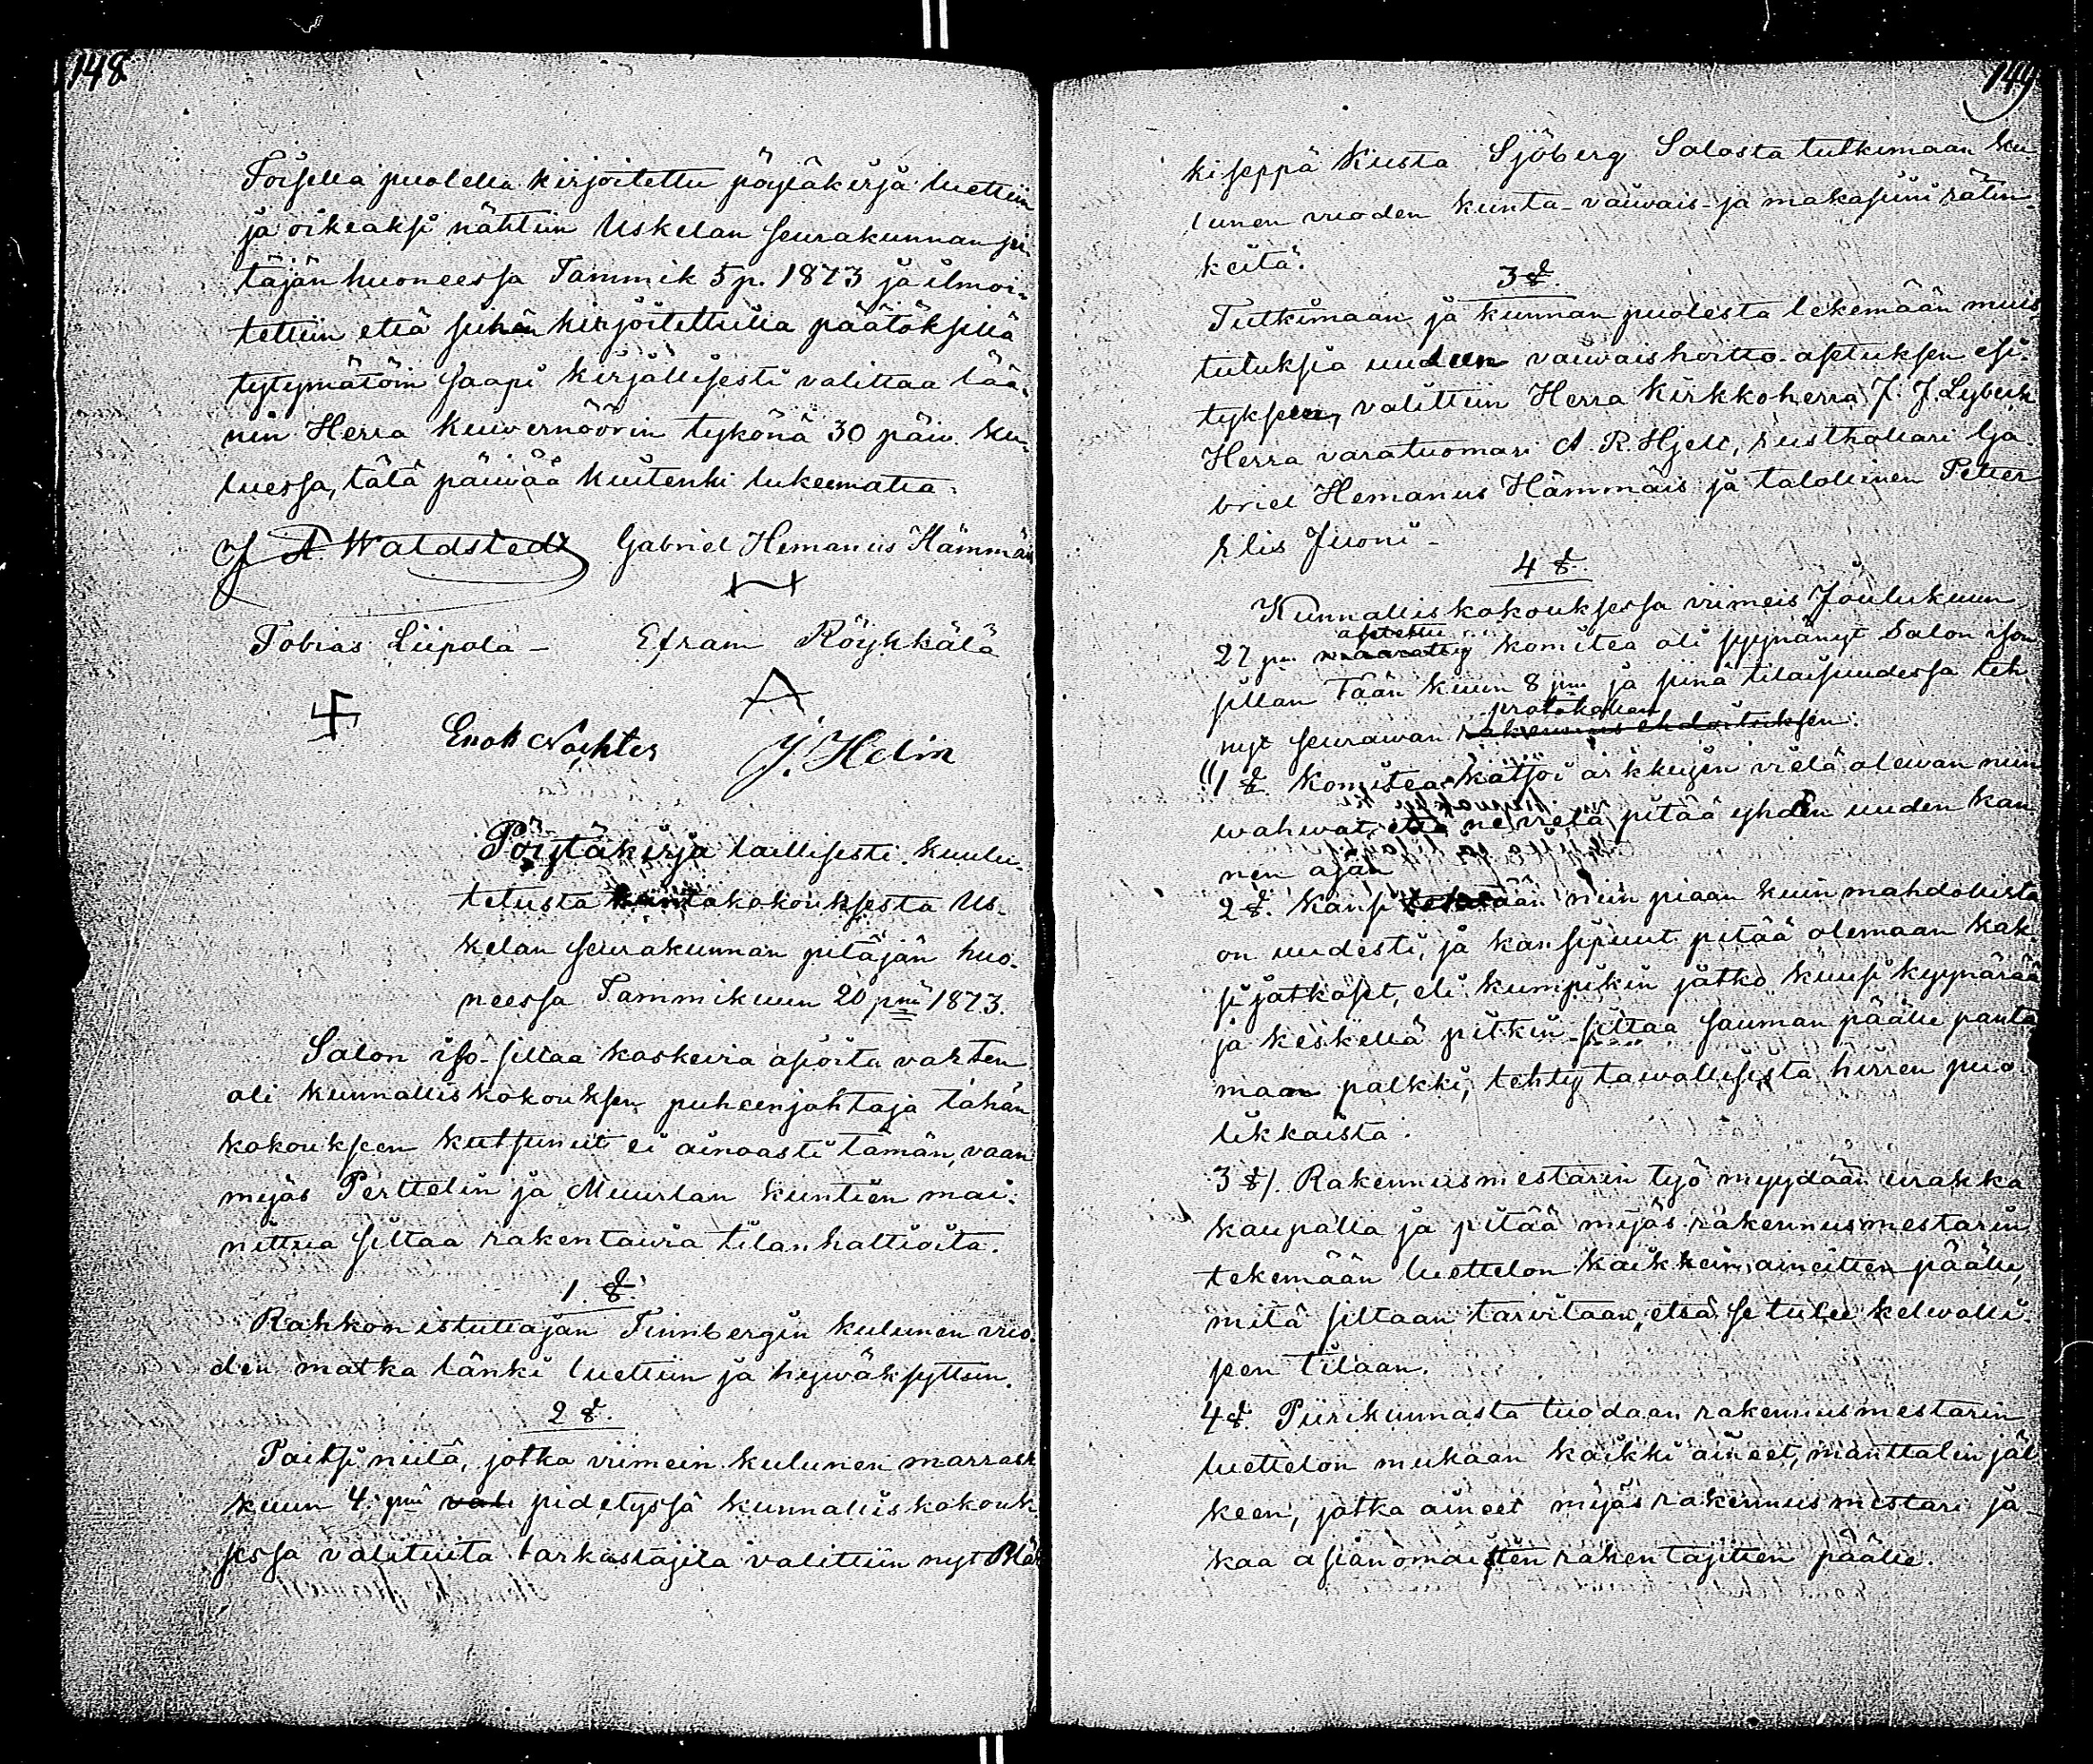 148
Toisella puolella kirjoitettu pöytäkirja luettiin
ja oikeaksi nähtiin Uskelan seurakunnan pi-
täjän huoneessa Tammik 5 p. 1873 ja ilmoi-
tettiin että siihen kirjoitettuilla päätöksillä
tytymätöin saapi kirjällisesti valittaa lää-
nin Herra Kuvernöörin tykönä 30 päiw. ku-
luessa, tätä päiwää kuitenki lukematta.
J A Waldstedt Gabriel Hemanus Hämmäis
Tobias Liipola - Efraim Röyhkälä
Enok Nochter J. Helin
Pöytäkirja laillisesti kuulu-
tetusta kuntakokouksesta Us-
kelan seurakunnan pitäjän huo-
neessa Tammikuun 20 pnä 1873.
Salon iso-siltaa koskevia asioita varten
oli kunnalliskokouksen puheenjohtaja tähän
kokoukseen kutsunut ei ainoasti tämän, vaan
myös Perttelin ja Muurlan kuntien mai-
nittua siltaa rakentavia tilanhaltioita.
1. §.
Rahkon istuttajan Tinnbergin kulunen vuo-
den matka länki luettiin ja hywäksyttiin.
2 §.
Paitsi niitä, jotka viimein kulunen marrask
kuun 4. pnä vali pidetyssä kunnalliskokouk-
sessa valituita tarkastajita valittiin nyt Blä
149
kiseppä Kusta Sjöberg Salosta tutkimaan ku-
lunen vuoden kunta- vaiwais- ja makasiini rätin-
keitä.
3 §.
Tutkimaan ja kunnan puolesta tekemään muis-
tutuksia uuden vaiwaishoitto-asetuksen esi-
tykseen, valittiin Herra Kirkkoherra J. J. Lybeck
Herra varatuomari A. R. Hjelt, rusthollari Ga-
briel Hemanus Hämmäis ja talollinen Petter
Elis Juoni -
4 §.
Kunnalliskokouksessa viimeis Joulukuun
asetettu
27 pnä määrätty komitea oli syynänyt Salon ison
sillan Tään kuun 8 pnä ja siinä tilaisuudessa teh-
protokollan
nyt seurawan rakennus ehdoituksen.
"1 §. Komitea kätsoi arkkujen vielä olewan niin
wahwat, että ne vielä pitää yhden uuden kan-
nen ajan
2 §. Kansi tehdään niin piaan kuin mahdollista
on uudesti, ja kansipuut pitää olemaan kak-
si jatkoset, eli kumpikin jatko kuusi kyynärää
ja keskellä pitkin siltaa sauman päälle panta-
maan palkki, tehty tawallisista hirren puo-
likkaista.
3 §/. Rakennusmestarin työ myydään urakka
kaupalla ja pitää myös rakennusmestarin
tekemään luettelon kaikkein aineitten päälle,
mitä siltaan tarvitaan, että se tulee kelwolli-
seen tilaan.
4 §. Piirikunnasta tuodaan rakennusmestarin
luettelon mukaan kaikki aineet, manttalin jäl-
keen, jotka aineet myös rakennusmestari ja-
kaa asianomaisten rakentajitten päälle.